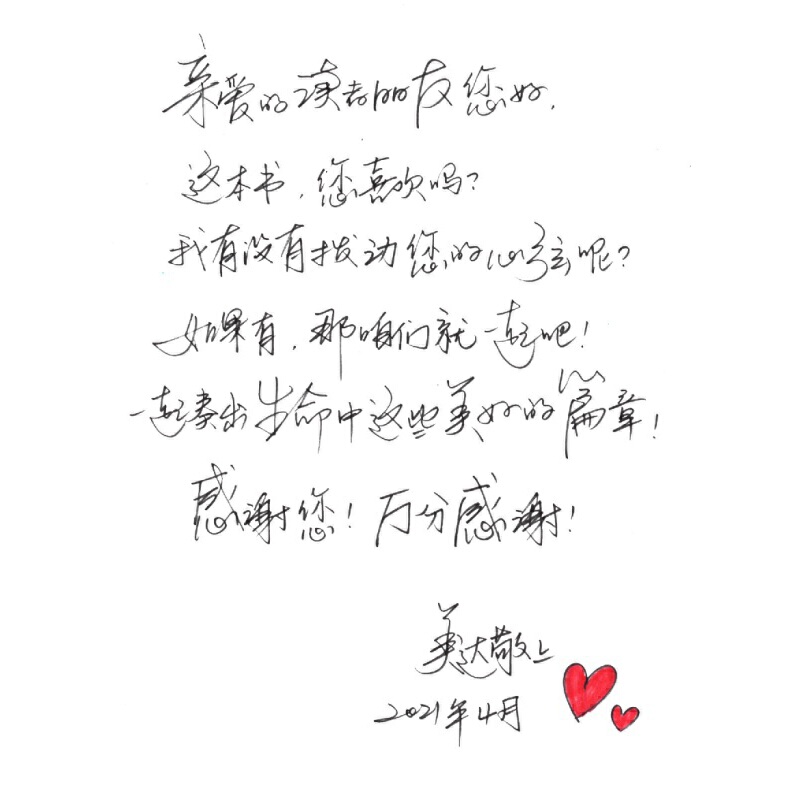 亲爱的读者朋友您好，
这本书，您喜欢吗？
我有没有拨动您的心弦呢？
如果有，那咱们就一起吧！
一起奏出生命中这些美好的篇章！
感谢您！万分感谢！
美达敬上
2021年4月